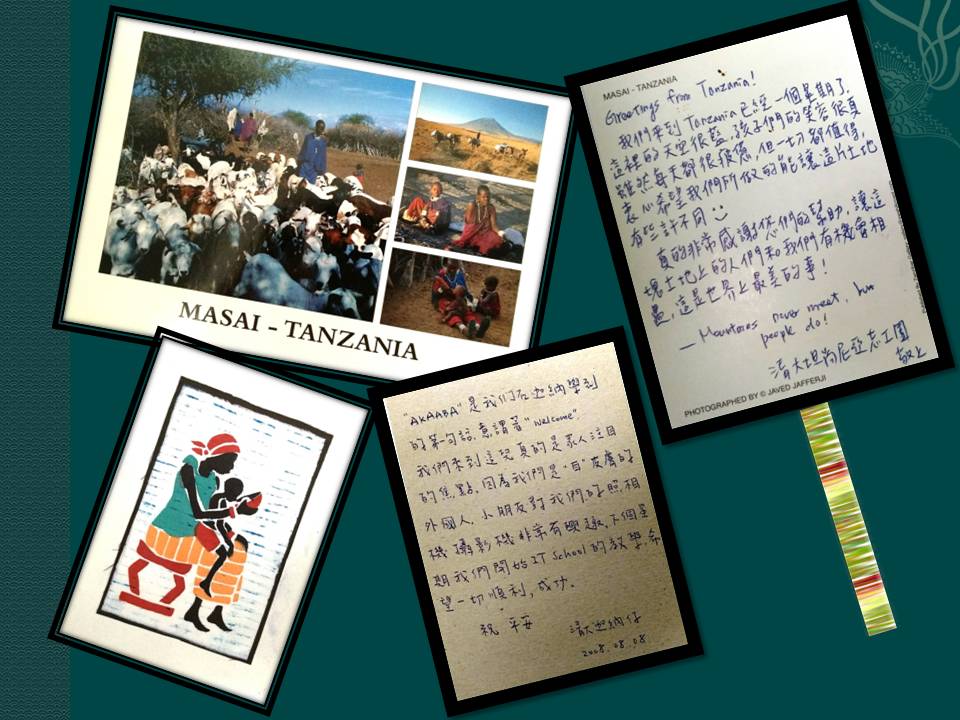 MASAI – TANZANIA
MASAI - TANZANIA
Greetings from Tanzania!
我們來到 Tanzania 已經一個星期了,
這裡的天空很藍,孩子們的笑容很真
雖然每天都很疲憊,但一切都值得,
衷心希望我們所做的能讓這片土地
有些許不同
真的非常感謝您們的幫助,讓這
塊土地上的人們和我們有機會相
遇,這是世界上最美的事!
— Mountains never meet, but
people do!
清大坦尚尼亞志工團
敬上
PHOTOGRAPHED BY © JAVED JAFFERJI
"AKAABA"是我们在迦納學到
的第一句話,意謂著"welcome"
我們來到這兒真的是眾人注目
的焦點,因為我們是"白"皮膚的
外國人,小朋友對我們的照相
機攝影機非常有興趣,下個星
期我們開始IT School的教學,希
望一切順利,成功。
祝 平安 清大迦納仔
2008.08.08